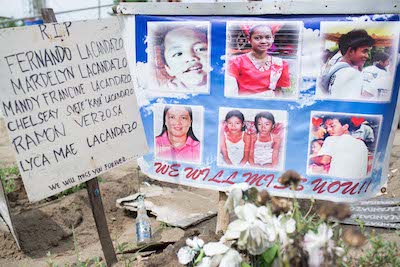 R.I.P
FERNANDO LACANDAZO
MARDELYN LACANDAZO
MANDY FRANCINE LACANDAZO
CHELSEAY LACANDAZO
RAMON VERZOSA
LYCA MAE LACANDAZO
WE WILL MISS YOU FOREVER
WE WILL MISS YOU!!